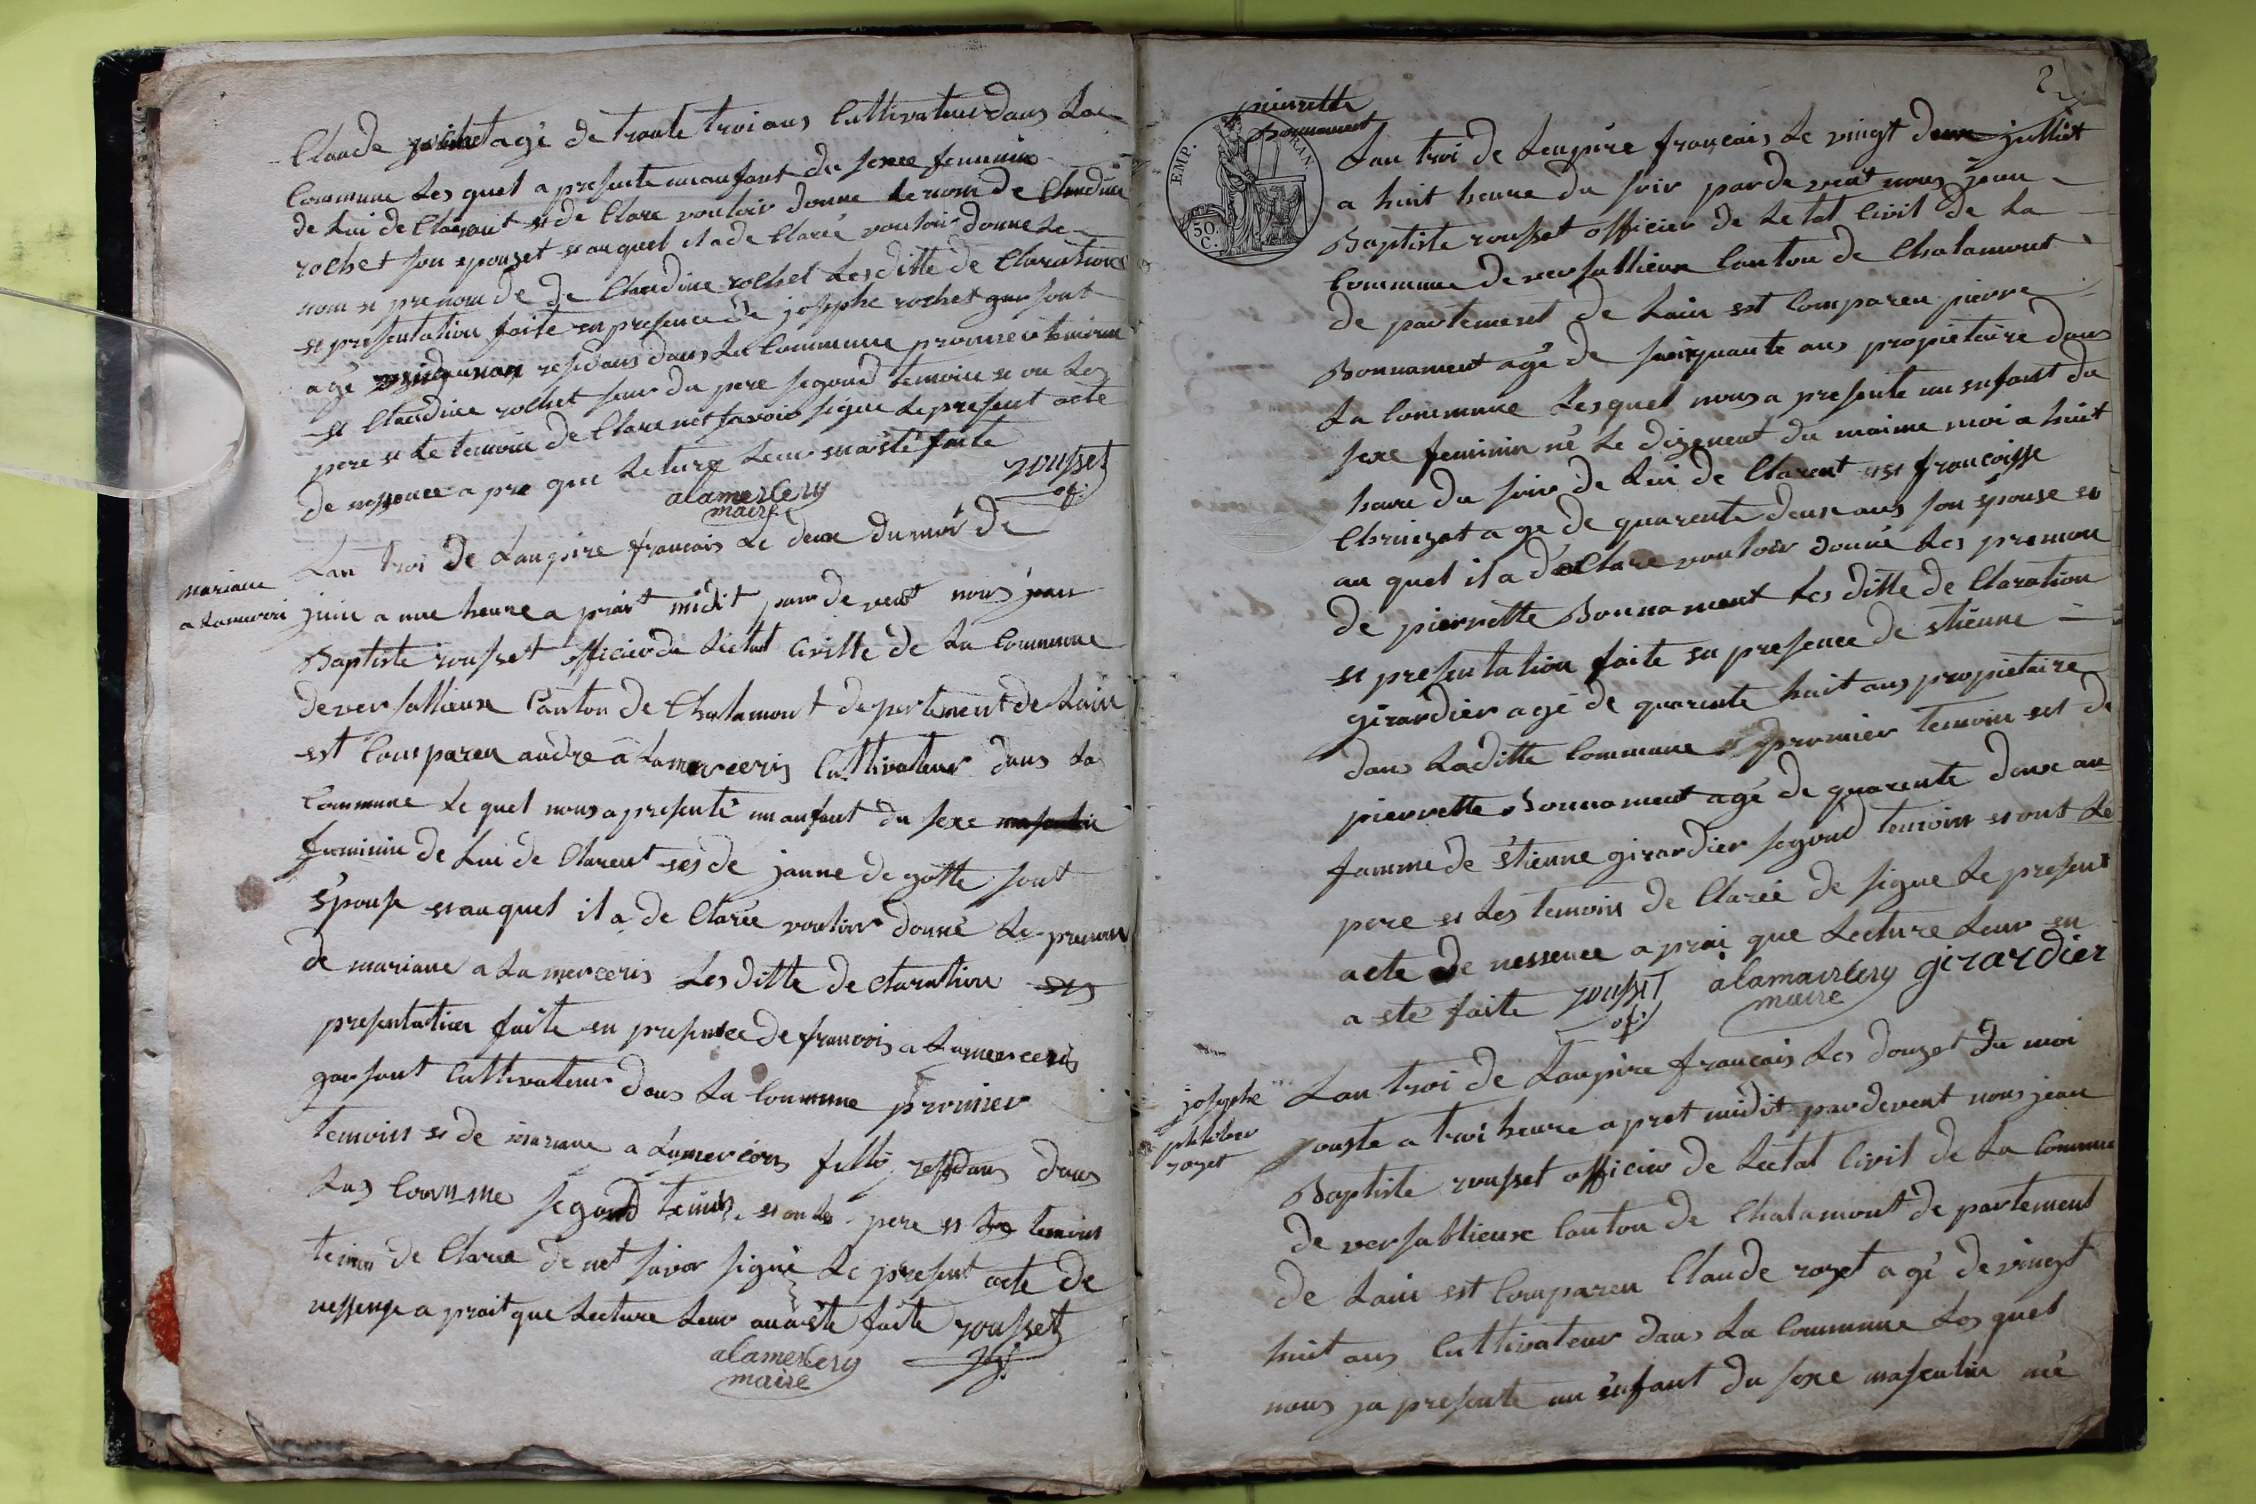 Claude rochet agé de trante troi ans Cultivateur dans La
Commune Les quel a presente un anfant du sexe feminin
de Lui de Clarant et de Clare vouloir donne le nom de Claudine
rochet son epouzet et au quel il a de Clarée vouloir donne Le
nom et prenom de de Claudine rochet Les ditte de Claration
et presentation faite en presence de josephe rochet garsont
agé residans dans La Commune promier temoin
et Claudine rochet seur du pere segond temoin et on Les
pere et Le temoin de Clare net savoir signe Le present acte
de nessence a pre que Leture Leur en a eté faite
rousset
of:
alamercery
maire
mariane
alamerceri
Lan troi de Lanpire francais Le deux du moi de
juin a une heure a praist midit par de vent nous jean
Baptiste rousset officier de Lectat Civille de La Commune
de versallieux Canton de Chalamont departement de Lain
est Compareu andre a Lamerceris Cultivateur dans La
Commune Le quel nous a presenté un anfant du sexe masculin
feminin de Lui de Clarent et de janne de gotte sont
épouse et au quel il a de Clarée vouloir donné Le prenom
de mariane a La merceris Les ditte de claration et
presentation faite en presence de francois a Lamerceris
garsont Cultivateur dans La Commune promier
temoin et de mariane a Lamerceris fille residans dans
Las Commune segond temoin et on Les pere et Les temoins
temoin de Clarae de net savoir signé Le present acte de
nessense a prait que Lecture Leur an a éte faite rousset
of:
alamercery
maire
2
pierrette
Bonnament
EMP. FRAN.
50. C.
Lan troi de Lenpire français Le vingt deux julliet
a huit heure du soir par de vent nous jean
Baptiste rousset officier de Le tat Civil de La
Commune de versallieux Canton de Chalamont
de partement de Lain est Compareu pierre
Bonnament agé de sinquante ans propietaire dans
La Commune Les quel nous a presente un enfant du
sexe feminin né Le dizeneuf du maime moi a huit
heure du soir de Lui de Clarent et francoisse
Chruizat age de quarente deux ans son épouse et
au quel il a déClare vouloir donné Les prenon
de pierrette Bonnament Les ditte de Claration
et presentation faite en presence de étienne
girardier agé de quarente huit ans propietaire
dans Laditte Commune et promier temoin est de
pierrette Bonnament agé de quarente deux an
famme de étienne girardier segond temoin et ont Le
pere et Les temoin de Clarée de signe Le present
acte de nessence a prai que Lecture Leur en
a ete faite rousset alamercery girardier
of: maire
josephe
philiber
rozet
Lan troi de Lanpire francais Les douzet du moi
jouste a troi heure a pret midit pardevent nous jean
Baptiste rousset officier de Lectat Civil de La Commune
de versallieux Canton de Chalamont de partement
de Lain est Compareu Claude rozet agé de vingt
huit ans Cultivateur dans La Commune Les quel
nous ja presente un enfant du sexe masculin né